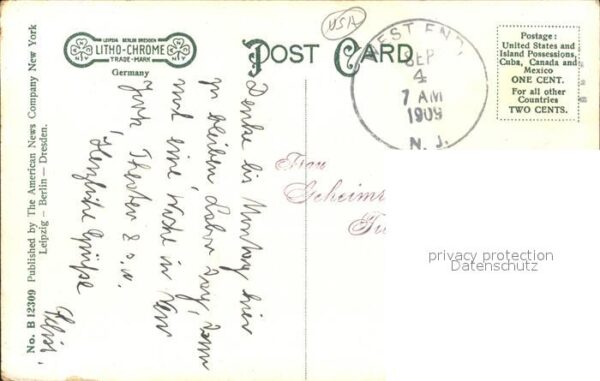 LEIPZIG BERLIN DRESDEN
LITHO-CHROME
TRADE-MARK
N Y
N Y
Germany
POST CARD
USA
WEST END
SEP
4
7 AM
1909
N. J.
Postage:
United States and
Island Possessions
Cuba, Canada and
Mexico
ONE CENT.
For all other
Countries
TWO CENTS.
Denke bis Montag hier
zu bleiben, Labor Day, dann
noch eine Woche in New
York, Theater
Herzliche Grüsse
Frau
Geheimr
privacy protection
Datenschutz
No. B 12309 Published by The American News Company New York
Leipzig – Berlin – Dresden.